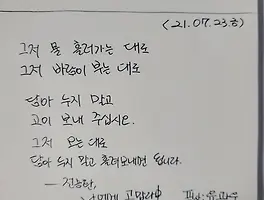 (21.07.23금)
그저 물 흘러가는 대로
그저 바람이 부는 대로
담아 두지 말고
고이 보내 주십시오.
그저 오는 대로
담아 두지 말고 흘려보내면 됩니다.